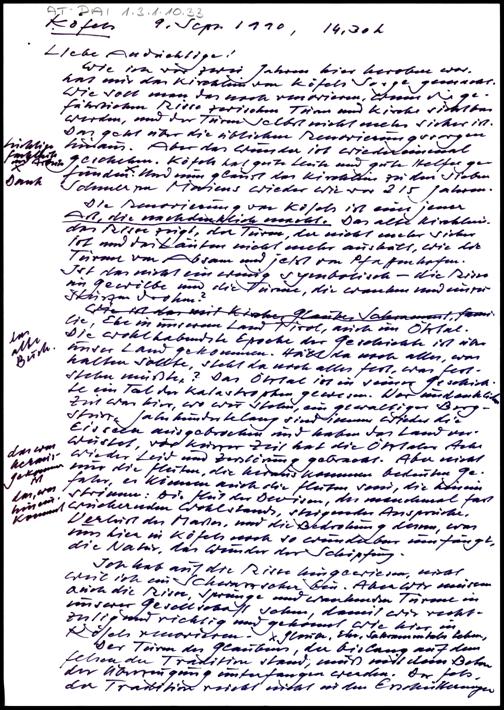 AT-DAI 1.3.1.10.33
Köfels 9. Sept. 1990, 14.30 h
Liebe Andächtige!
Wie ich vor zwei Jahren hier heroben war,
hat mir das Kirchlein von Köfels Sorge gemacht.
Wie soll man das noch renovieren, wenn die ge-
fährlichen Risse zwischen Turm und Kirche sichtbar
werden, und der Turm selbst nicht mehr sicher ist.
Das geht über die üblichen Renovierungssorgen
hinaus. Aber das Wunder ist wieder einmal
geschehen. Köfels hat gute Leute und gute Helfer ge-
funden. Und nun glänzt das Kirchlein zu den Sieben
Schmerzen Mariens wieder wie vor 215 Jahren.
Dank
Die Renovierung von Köfels ist eine jener
Art, die nachdenklich machte. Das alte Kirchlein,
das Risse zeigt, der Turm, der nicht mehr sicher
ist und das Läuten nicht mehr aushält, wie die
Türme von Absam und jetzt von Pfaffenhofen.
Ist das nicht ein wenig symbolisch – die Risse
im Gewölbe und die Türme, die wanken und einzu-
stürzen drohn?
Wie ist das mit Kirche, Glaube, Sakrament, Fami-
lie, Ehe in unserem Land Tirol, auch im Ötztal.
Die wohlhabendste Epoche der Geschichte ist über
unser Land gekommen. Hält da noch alles, was
halten sollte, steht da noch alles fest, was fest-
stehen müßte? Das Ötztal ist in seiner Geschich-
te ein Tal der Katastrophen gewesen. Vor undenklicher
Zeit war hier, wo wir stehn, ein gewaltiger Berg-
sturz. Jahrhundertelang sind immer wieder die
Eisseen ausgebrochen und haben das Land ver-
wüstet, vor kurzer Zeit hat die Ötztaler Ache
wieder Leid und Zerstörung gebracht. Aber nicht
nur die Fluten, die herauskommen bedeuten Ge-
fahr, es können auch die Fluten sein, die hinein
strömen: Die Flut der Devisen, des manchmal fast
wuchernden Wohlstands, steigender Ansprüche,
Verlust des Maßes, und die Bedrohung dessen, was
uns hier in Köfels noch so wunderbar umfängt,
die Natur, das Wunder der Schöpfung.
das was
heraus-
gekommen
das, was
hinein
kommt
Ich hab auf die Risse hingewiesen, nicht
weil ich ein Schwarzseher bin. Aber wir müssen
auch die Risse, Sprünge und wankenden Türme in
unserer Gesellschaft sehen, damit wir recht-
zeitig und richtig und gekonnt wie hier in
Köfels renovieren.
Der Turm des Glaubens, der bislang auf dem
Felsen der Tradition stand, muß mit dem Beton
der Überzeugung unterfangen werden. Der Fels
der Tradition reicht nicht in den Erschütterungen